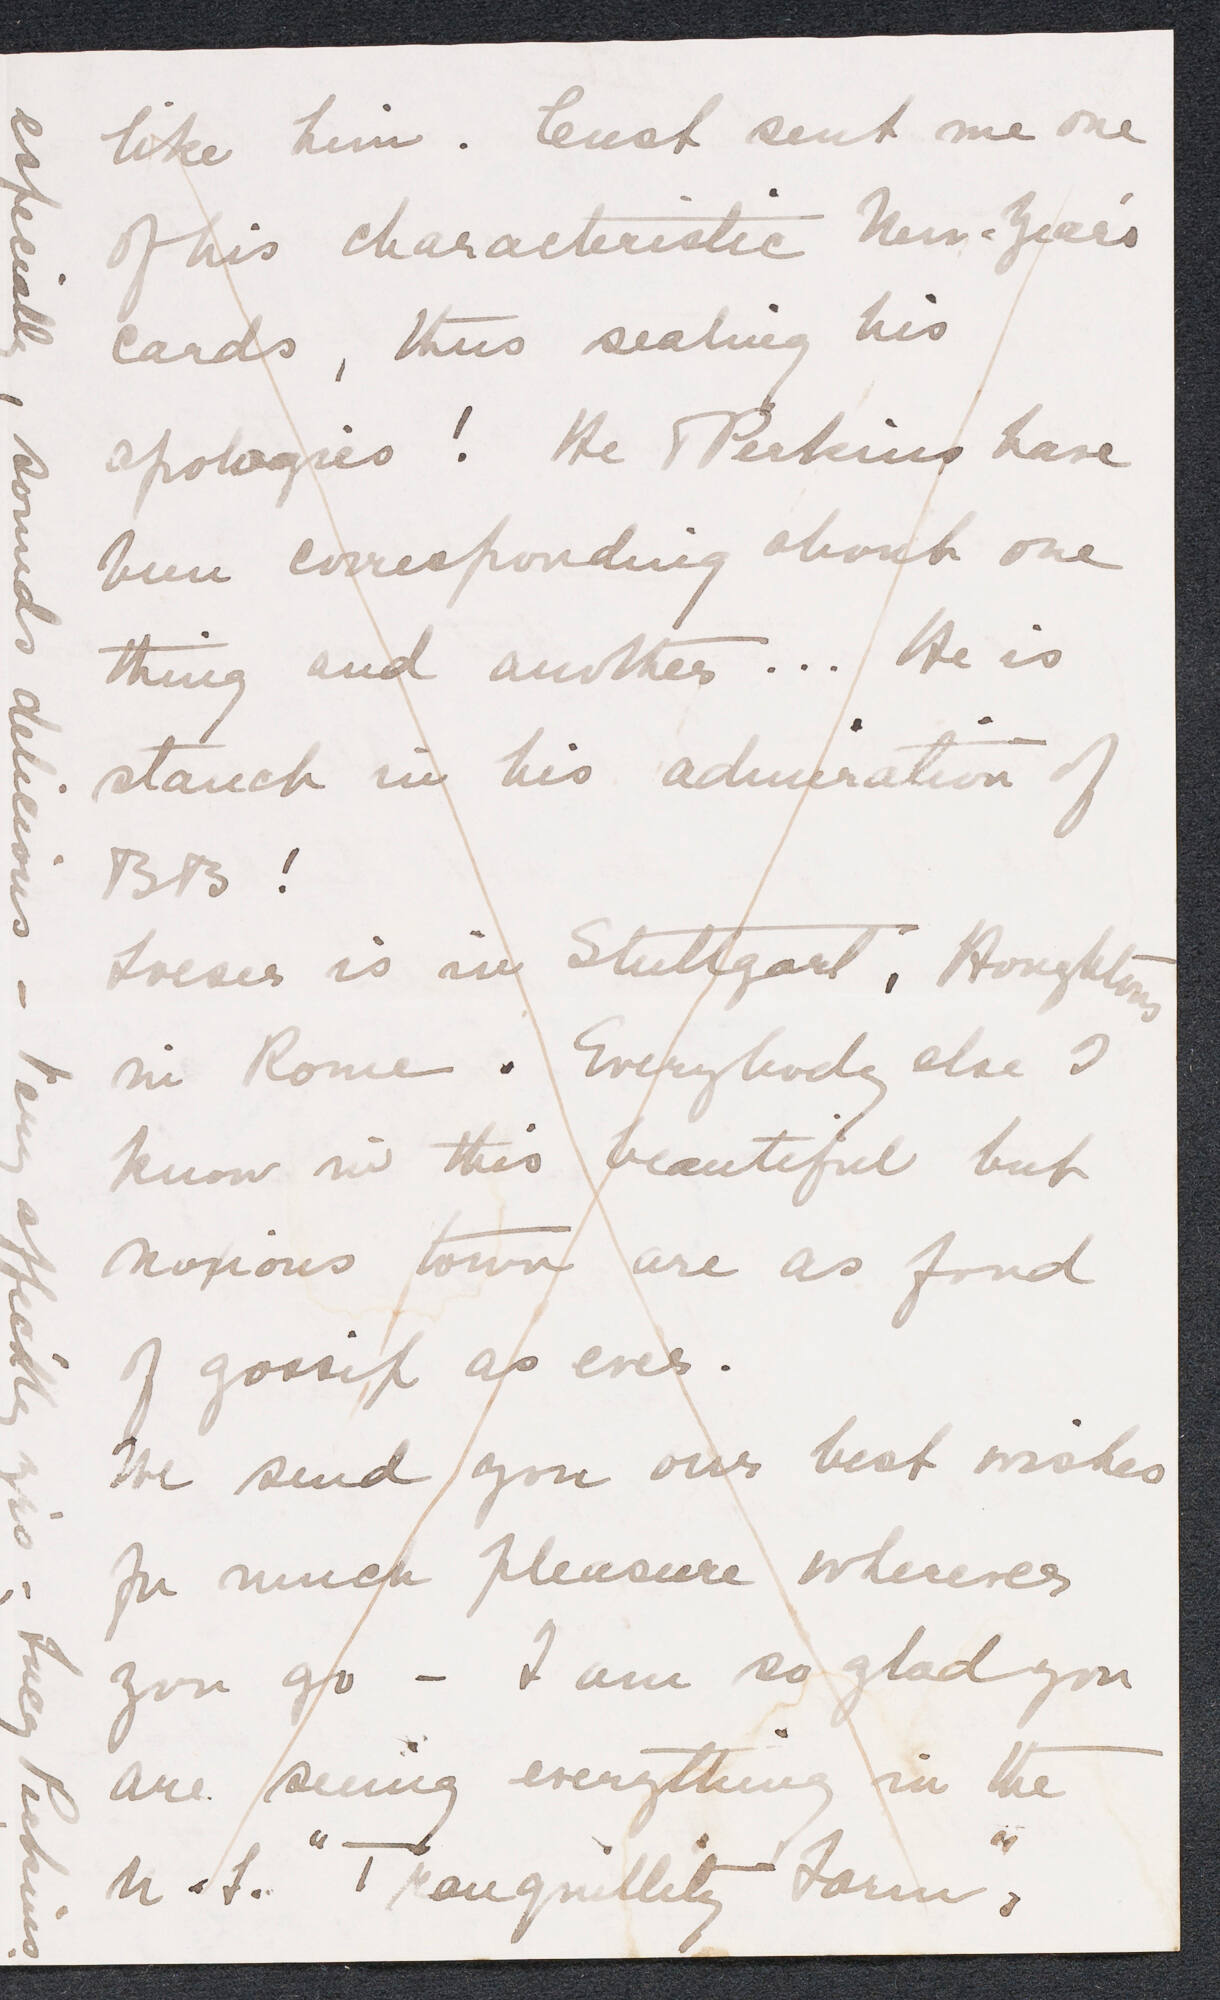 like him. Cust sent me one
of his characteristic New-Year's
cards, thus sealing his
apologies! He & Perkins have
been corresponding about one
thing and another... He is
stanch in his admiration of
BB!
Loeser is in Stuttgart, Houghtons
in Rome. Everybody else I
know in this beautiful but
noxious town are as fond
of gossip as ever.
We send you our best wishes
for much pleasure wherever
you go - I am so glad you
are seeing everything in the
U.S. "Tranquillity Farm,"
especially, sounds delicious - Very affectly yrs - Lucy Perkins.